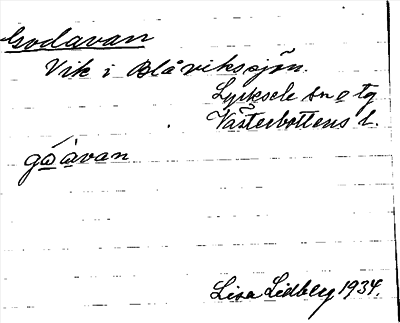 Godavan
Vik i Blåvikssjön.
Lycksele sn o tg
Västerbottens l.
gòàvan
Lisa Lidberg 1934.